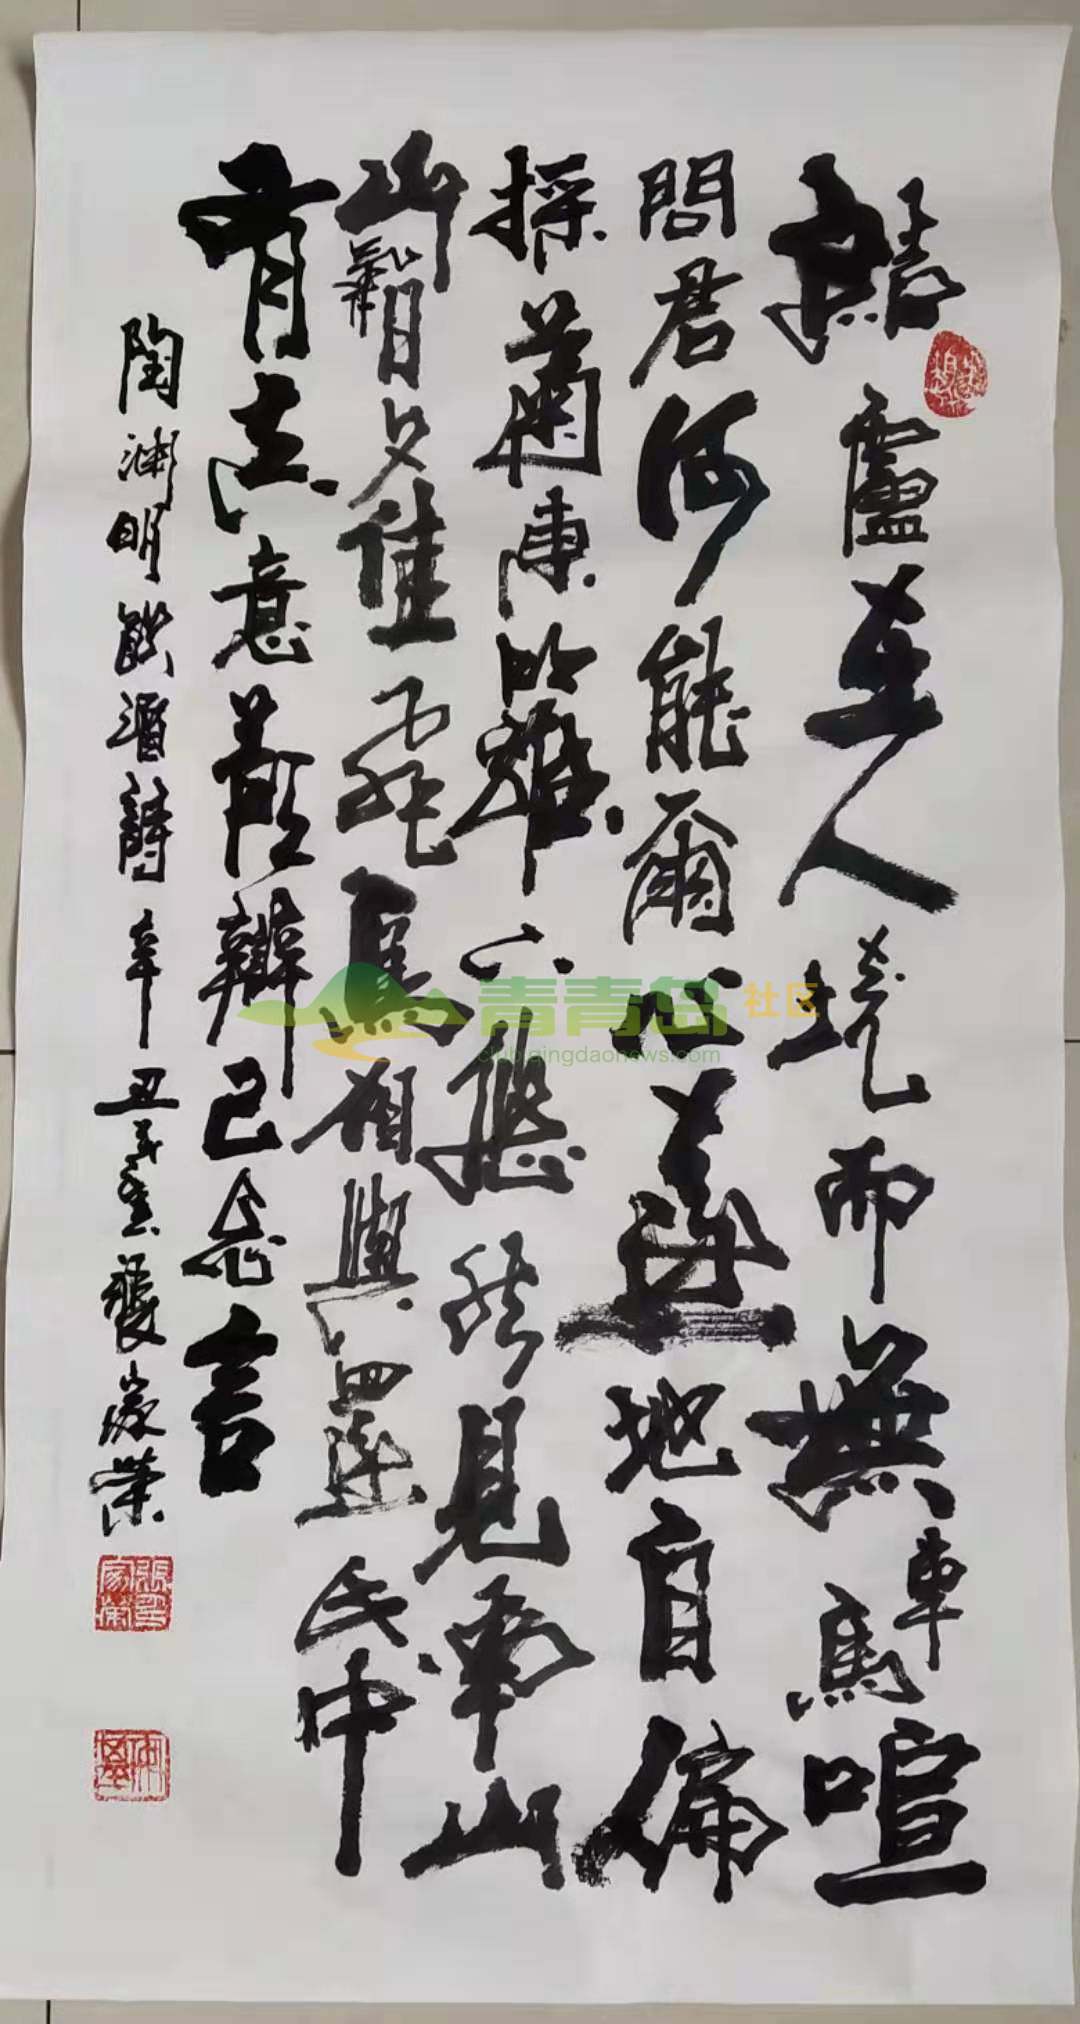 結廬在人境而無車馬喧
問君何能爾心遠地自偏
採菊東籬下悠然見南山
山氣日夕佳飛鳥相與還此中
有真意欲辯已忘言
陶淵明飲酒詩辛丑張家榮
青青岛社区
club.qingdaonews.com